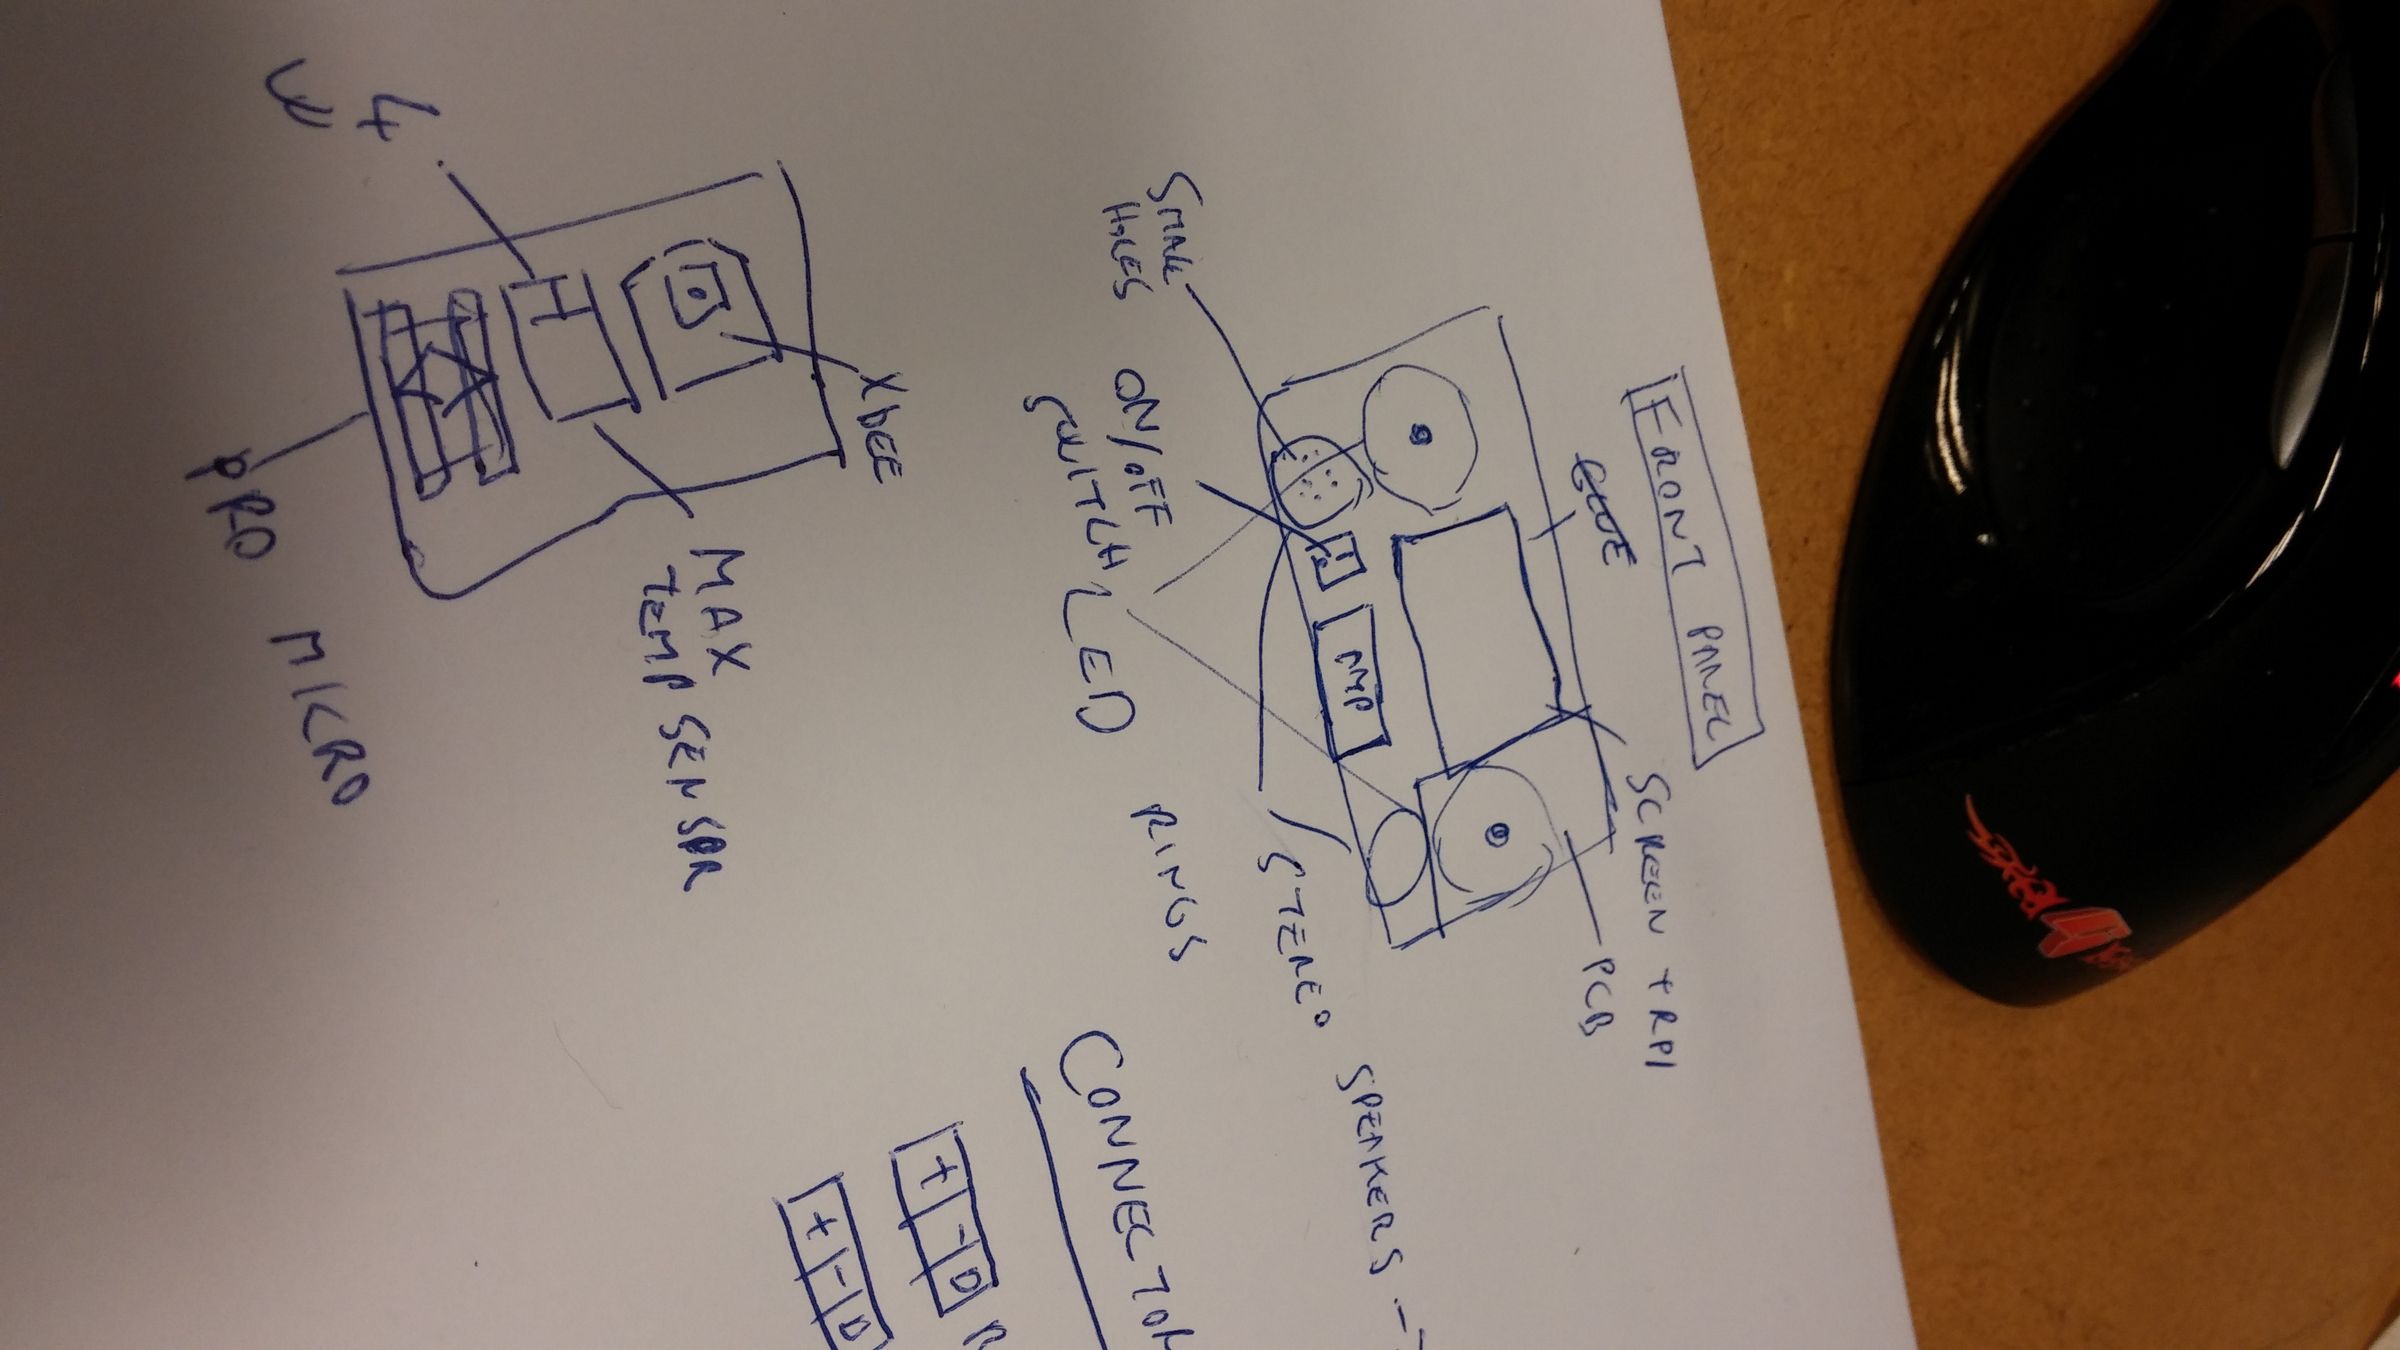 FRONT PANEL
GLUE
SCREEN + RPI
PCB
AMP
SMALL
HOLES
ON/OFF
SWITCH
LED RINGS
STEREO SPEAKERS
XBEE
MAX
TEMP SENSOR
PRO MICRO
CONNECTOR
+ - D
+ - D